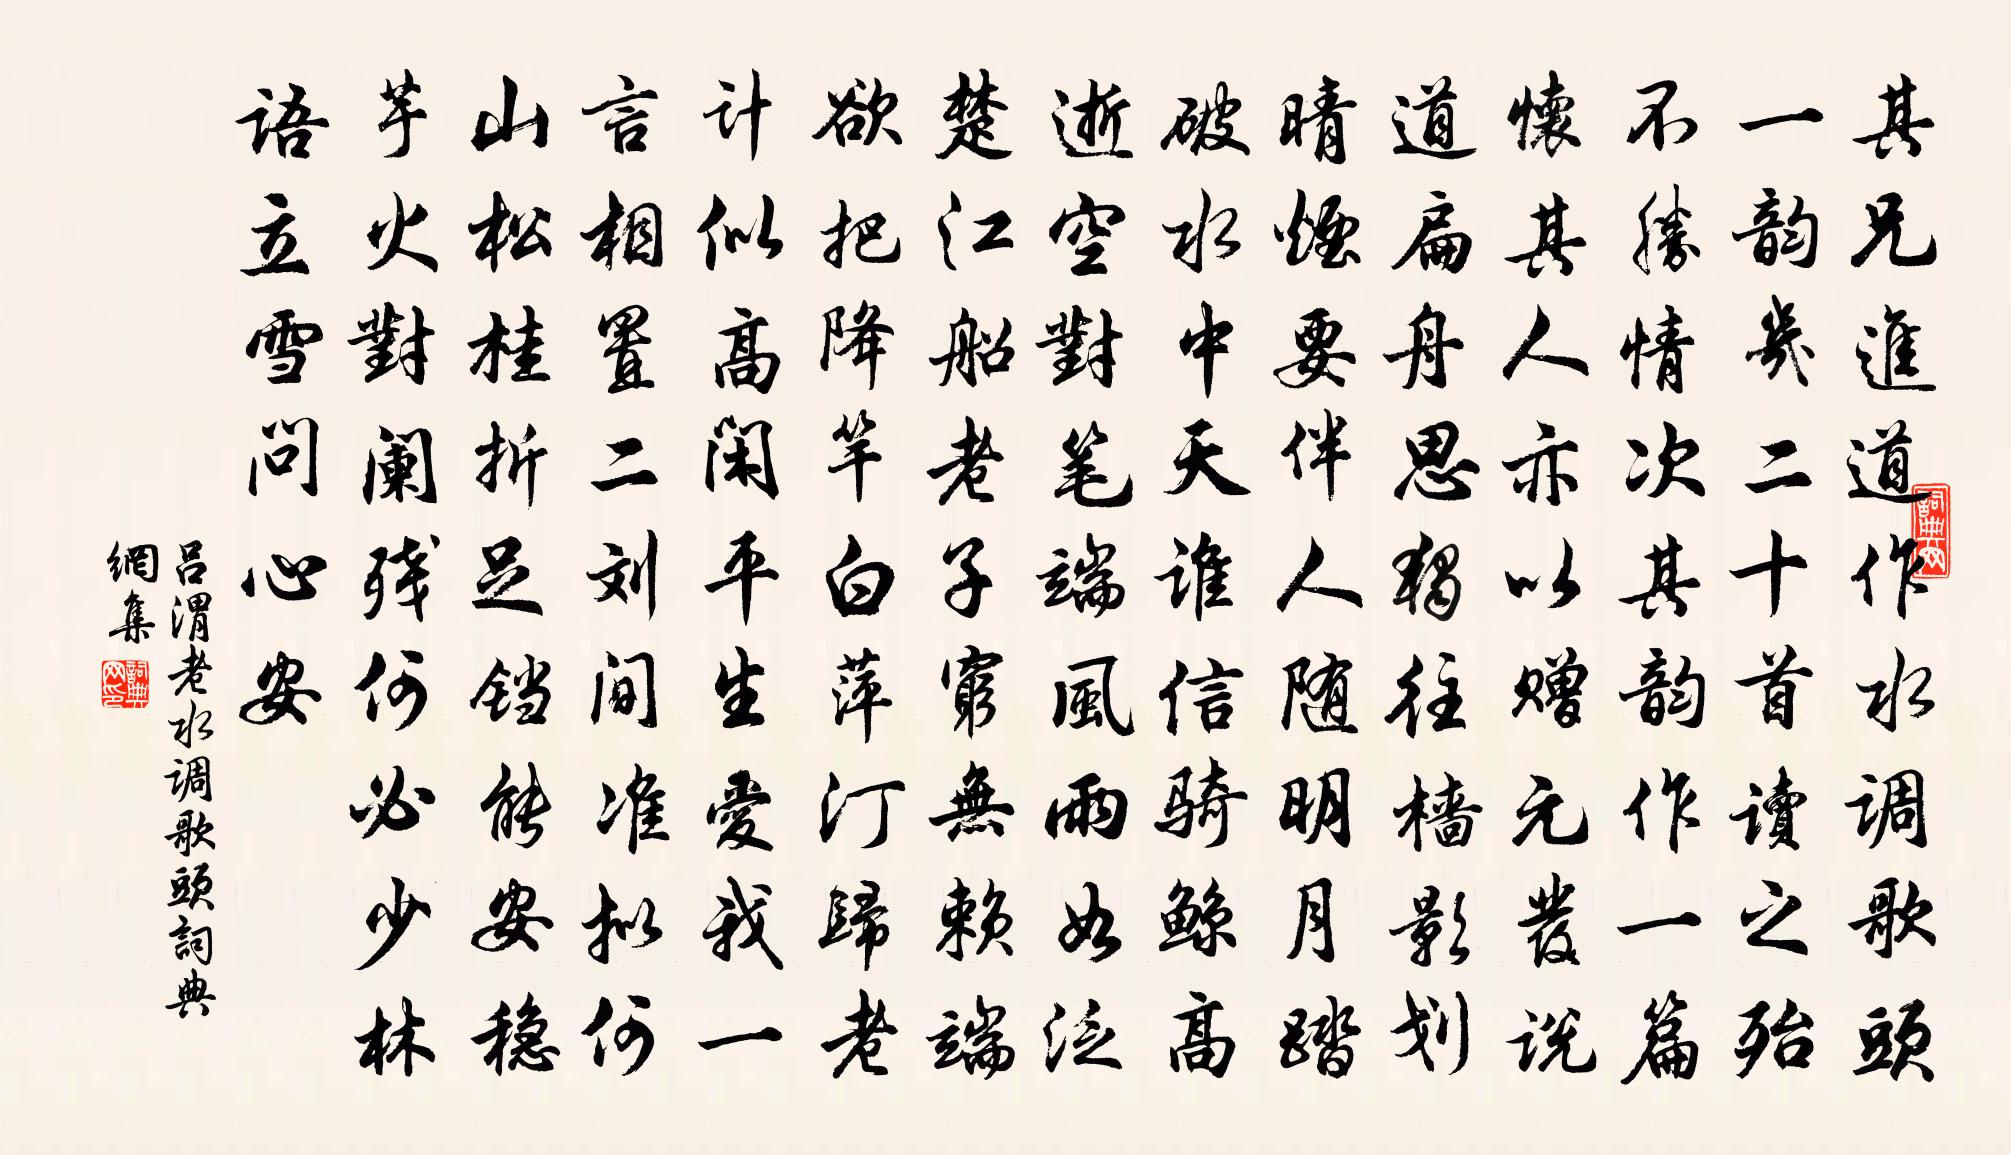 其兄進道作水调歌頭
一韵幾二十首讀之殆
不勝情次其韵作一篇
懷其人亦以赠元發说
道扁舟思獨往樯影划
晴煙要伴人随明月踏
破水中天谁信骑鲸高
逝空對笔端風雨如泛
楚江船老子窮無赖端
欲把降竿白萍汀歸老
计似高闲平生愛我一
言相置二刘间准拟何
山松桂折足铛能安稳
芋火對阑残何必少林
语立雪问心安
吕渭老水调歌頭詞典
網集
詞典網
詞典網印